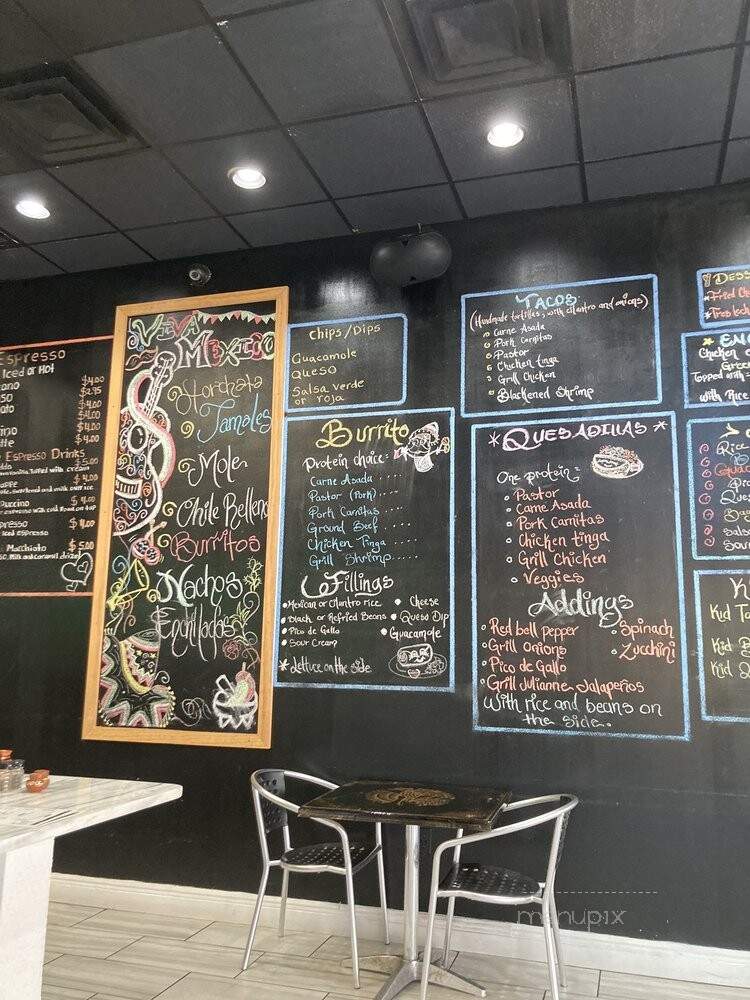 Espresso
Iced or Hot
$4.00
$2.75
$4.00
$4.00
$4.00
$4.00
Espresso Drinks
$5.00
$4.00
$4.00
$4.00
Macchiato $5.00
VIVA
MEXICO
Horchata
Tamales
Mole
Chile Rellenos
Burritos
Nachos
Enchiladas
Chips/Dips
Guacamole
Queso
Salsa verde
or roja
Burrito
Protein choice:
Carne Asada . . . .
Pastor (Pork) . . . .
Pork Carnitas . . . .
Ground Beef . . . .
Chicken Tinga . . . .
Grill Shrimp . . . .
Fillings
Mexican or Cilantro rice
Black or Refried Beans
Pico de Gallo
Sour Cream
* Lettuce on the side
Cheese
Queso Dip
Guacamole
TACOS
(Handmade tortillas, with cilantro and onions)
Carne Asada
Pork Carnitas
Pastor
Chicken tinga
Grill Chicken
Blackened Shrimp
* QUESADILLAS *
One protein:
Pastor
Carne Asada
Pork Carnitas
Chicken tinga
Grill Chicken
Veggies
Addings
Red bell pepper
Grill Onions
Pico de Gallo
Grill Julianne Jalapeños
Spinach
Zucchini
With rice and beans on
the side.
Dess
Fried Ch
Tres lech
EN
Chicken
Gree
Topped with
With Rice
Rice
Gua
Que
Salsa
Sour
K
Kid Ta
Kid B
Kid
menupix